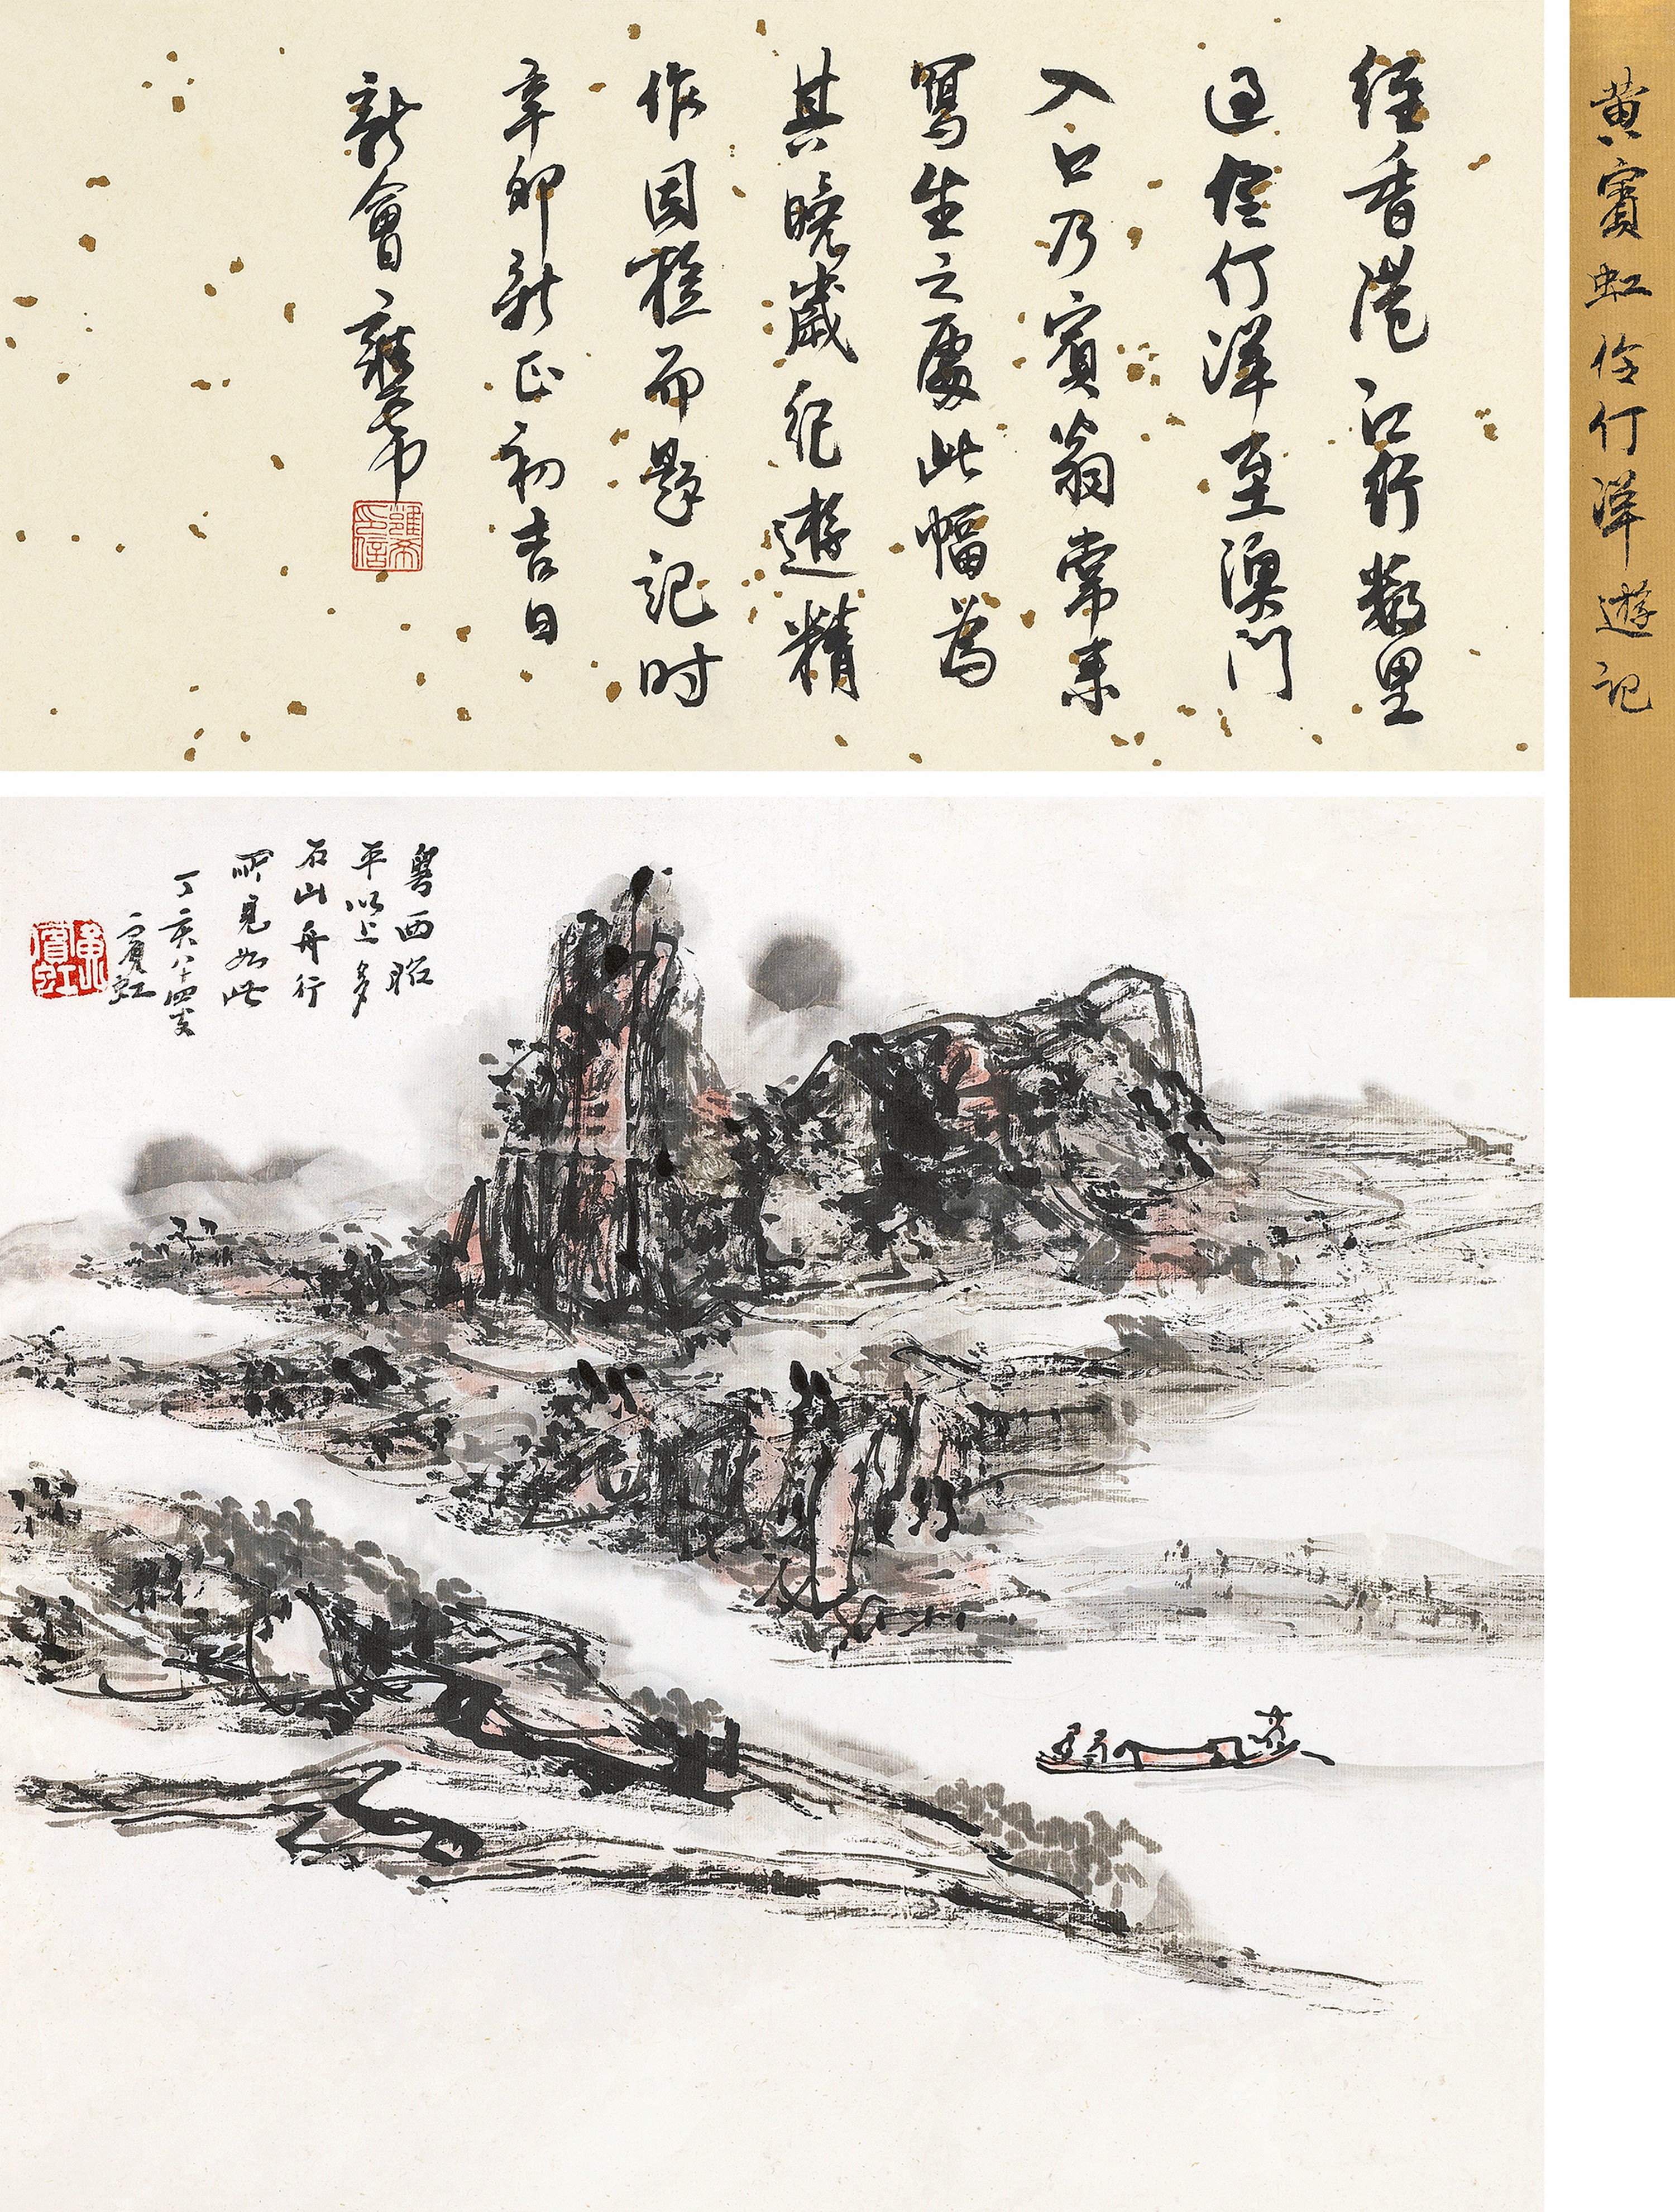 黄賓虹伶仃洋遊記
經香港江行數里
過伶仃洋至澳門
入口乃賓翁常來
寫生之處此幅為
其晚歲紀遊精
作因檢而題記时
辛卯新正初吉日
新會雍希
雍希印信
粵西昭
平以上多
石山舟行
所見如此
丁亥八十四叟
賓虹
黄賓虹